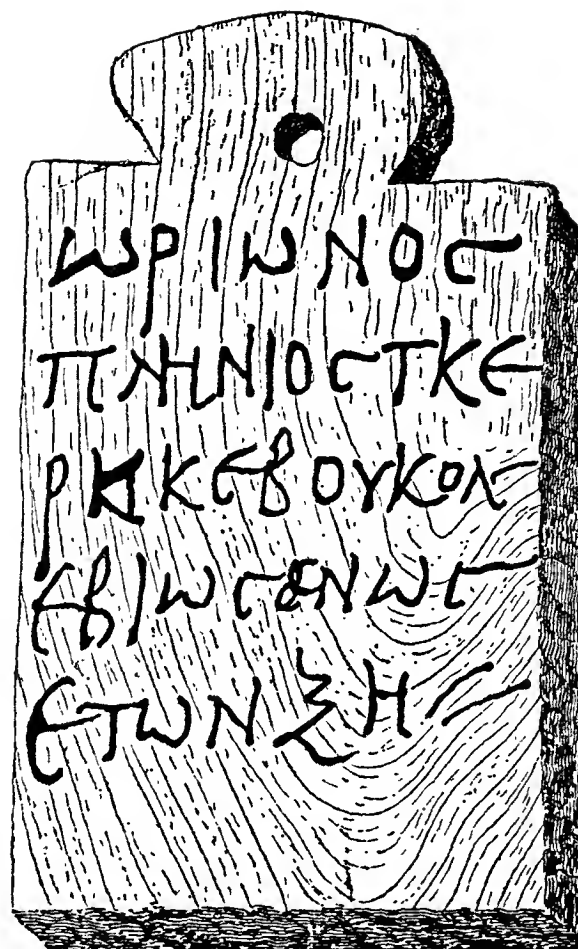 ωριωνος
πληνιοςτκε
ρηκεβουκολ
εβιωςενως
ετωνξη//